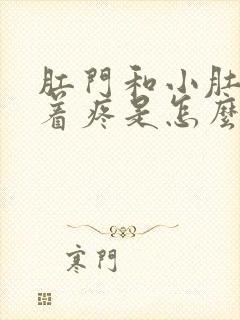 肛門和小肚
着疼是怎麼
寒門